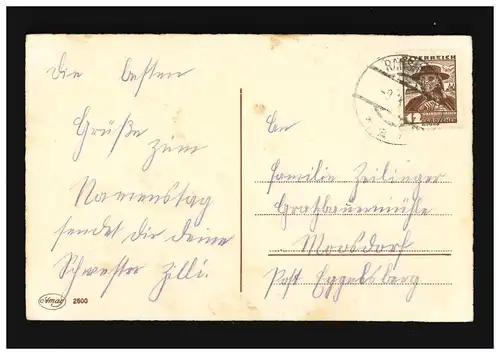 Die besten
Grüße zum
Namenstag
sendet Dir deine
Schwester Zilli.
Amag 2600
ÖSTERREICH
An
Familie Zeilinger
Moosdorf
Post Eggelsberg